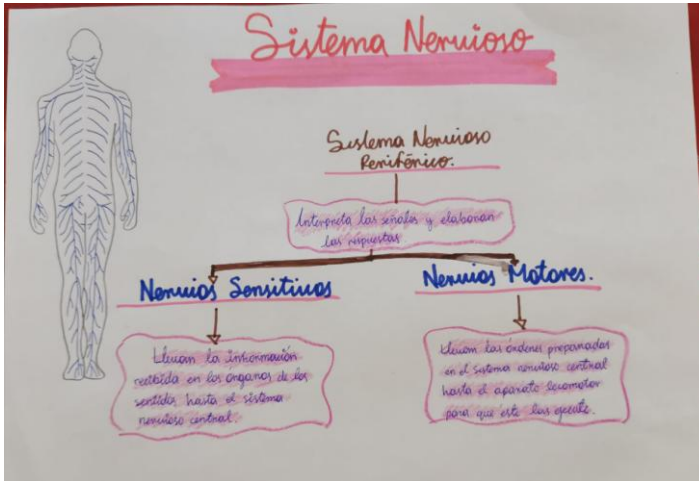 Sistema Nervioso
Sistema Nervioso
Periférico.
Interpreta las señales y elaboran
las respuestas
Nervios Sensitivos
Nervios Motores.
Llevan la información
recibida en los órganos de los
sentidos hasta el sistema
nervioso central.
Llevan las órdenes preparadas
en el sistema nervioso central
hasta el aparato locomotor
para que éste las ejecute.